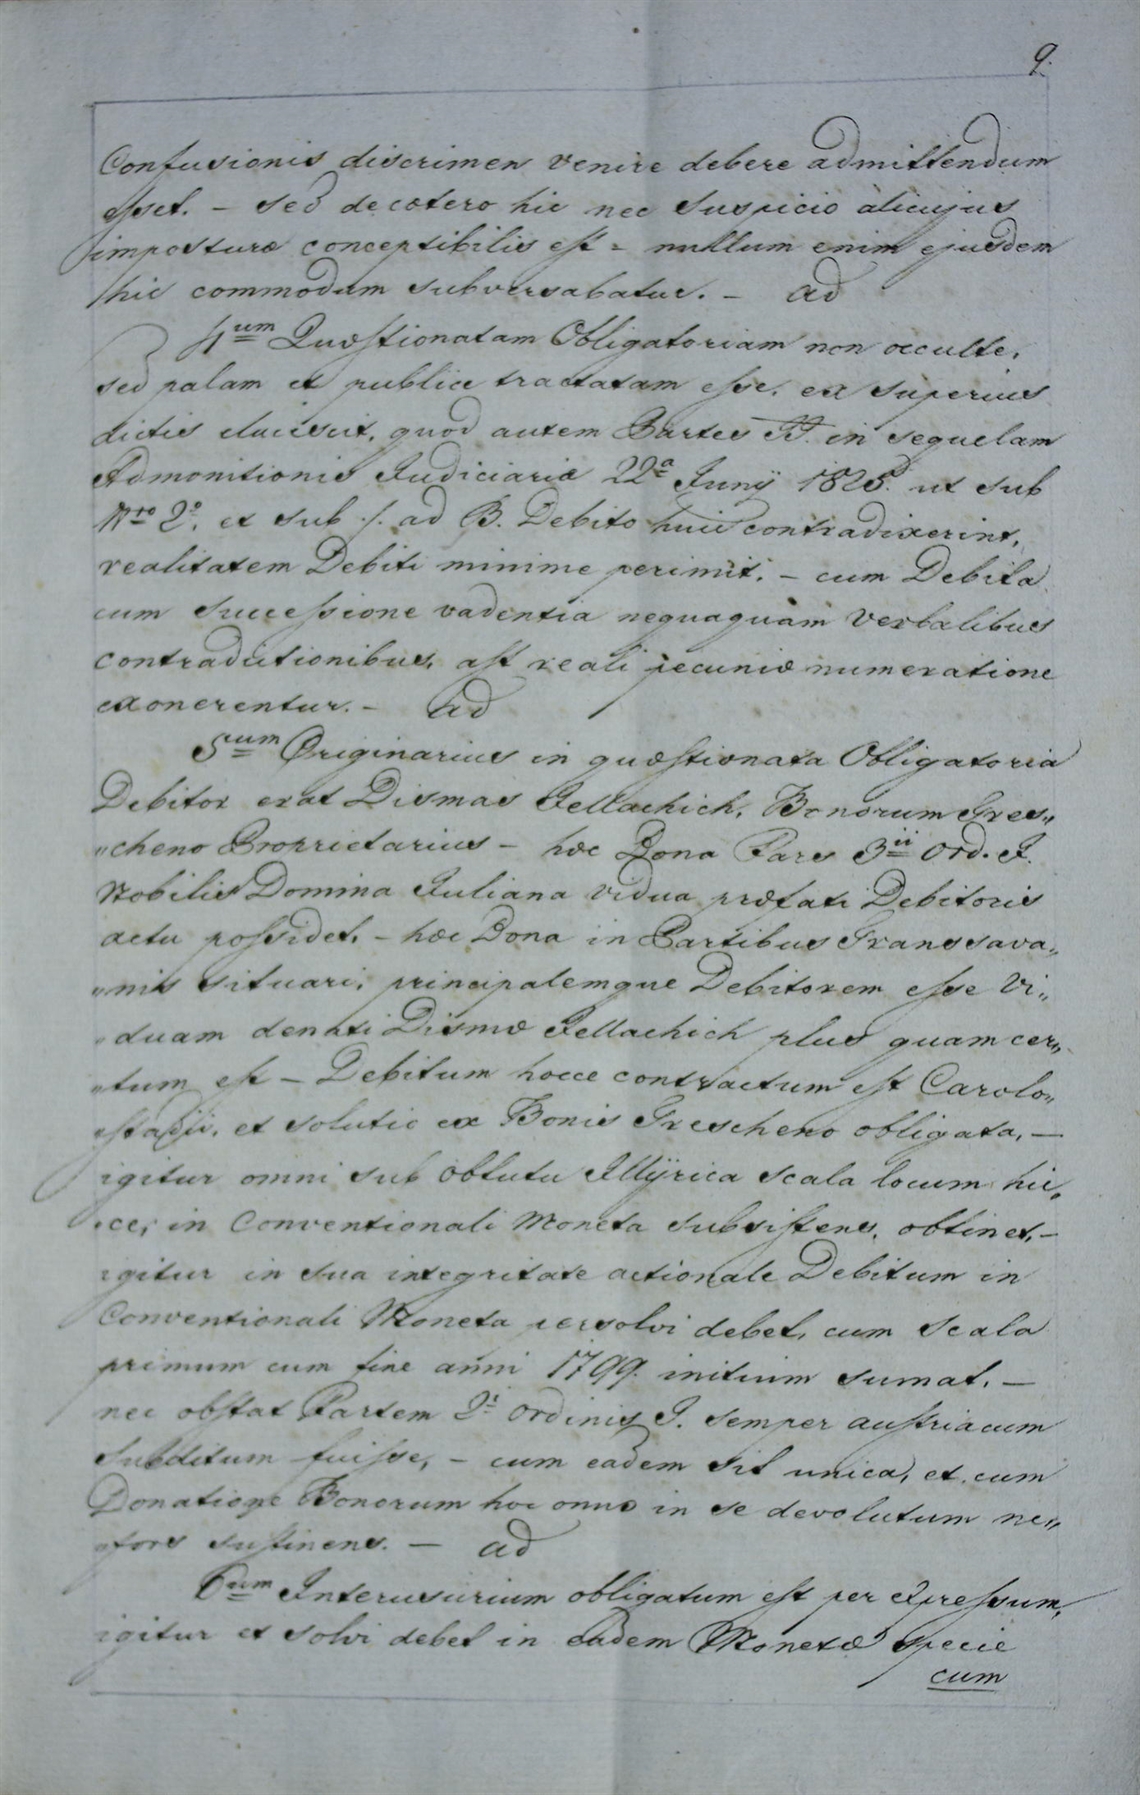 9.
Confusionis discrimen venire debere admittendum
esset. – Sed de cætero hic nec suspicio alicujus
imposturæ conceptibilis est – nullum enim ejusdem
hic commodum subversabatur. – ad
4um Quæstionatam Obligatoriam non occulte,
sed palam et publice tractatam esse, ex superius
dictis elucescit, quod autem Partes II. in sequelam
Admonitionis Judiciariæ 22a Junÿ 1825. ut sub
Nro 2o. et sub ./. ad B. Debito huic contradixerint,
realitatem Debiti minime perimit. – cum Debita
cum successione vadentia nequaquam verbalibus
contradictionibus, ast reali pecuniæ numeratione
exonerentur. – ad
5um Originarius in quæstionata Obligatoria
Debitor erat Dismas Jellachich, Bonorum Gres„
„cheno Proprietarius – hæc Bona Pars 3ii Ord. I.
Nobilis Domina Juliana vidua præfati Debitoris
actu possidet, – hæc Bona in Partibus Transsava„
„nis situari, principalemque Debitorem esse Vi„
„duam denati Dismæ Jellachich plus quam cer„
„tum est – Debitum hocce contractum est Carolo„
„stadii, et solutio ex Bonis Grescheno obligata, –
igitur omni sub obtutu Illÿrica scala locum hic„
„ce, in Conventionali Moneta subsistens, obtinet, –
igitur in sua integritate actionale Debitum in
Conventionali Moneta persolvi debet, cum scala
primum cum fine anni 1799. initium sumat. –
nec obstat Partem 2i Ordinis I. semper austriacum
subditum fuisse, – cum eadem sit unica, et cum
Donatione Bonorum hoc onus in se devolutum ne„
„fors sustinens. – ad
6um Interusurium obligatum est per expressum,
igitur et solvi debet in eadem Monetæ specie
cum